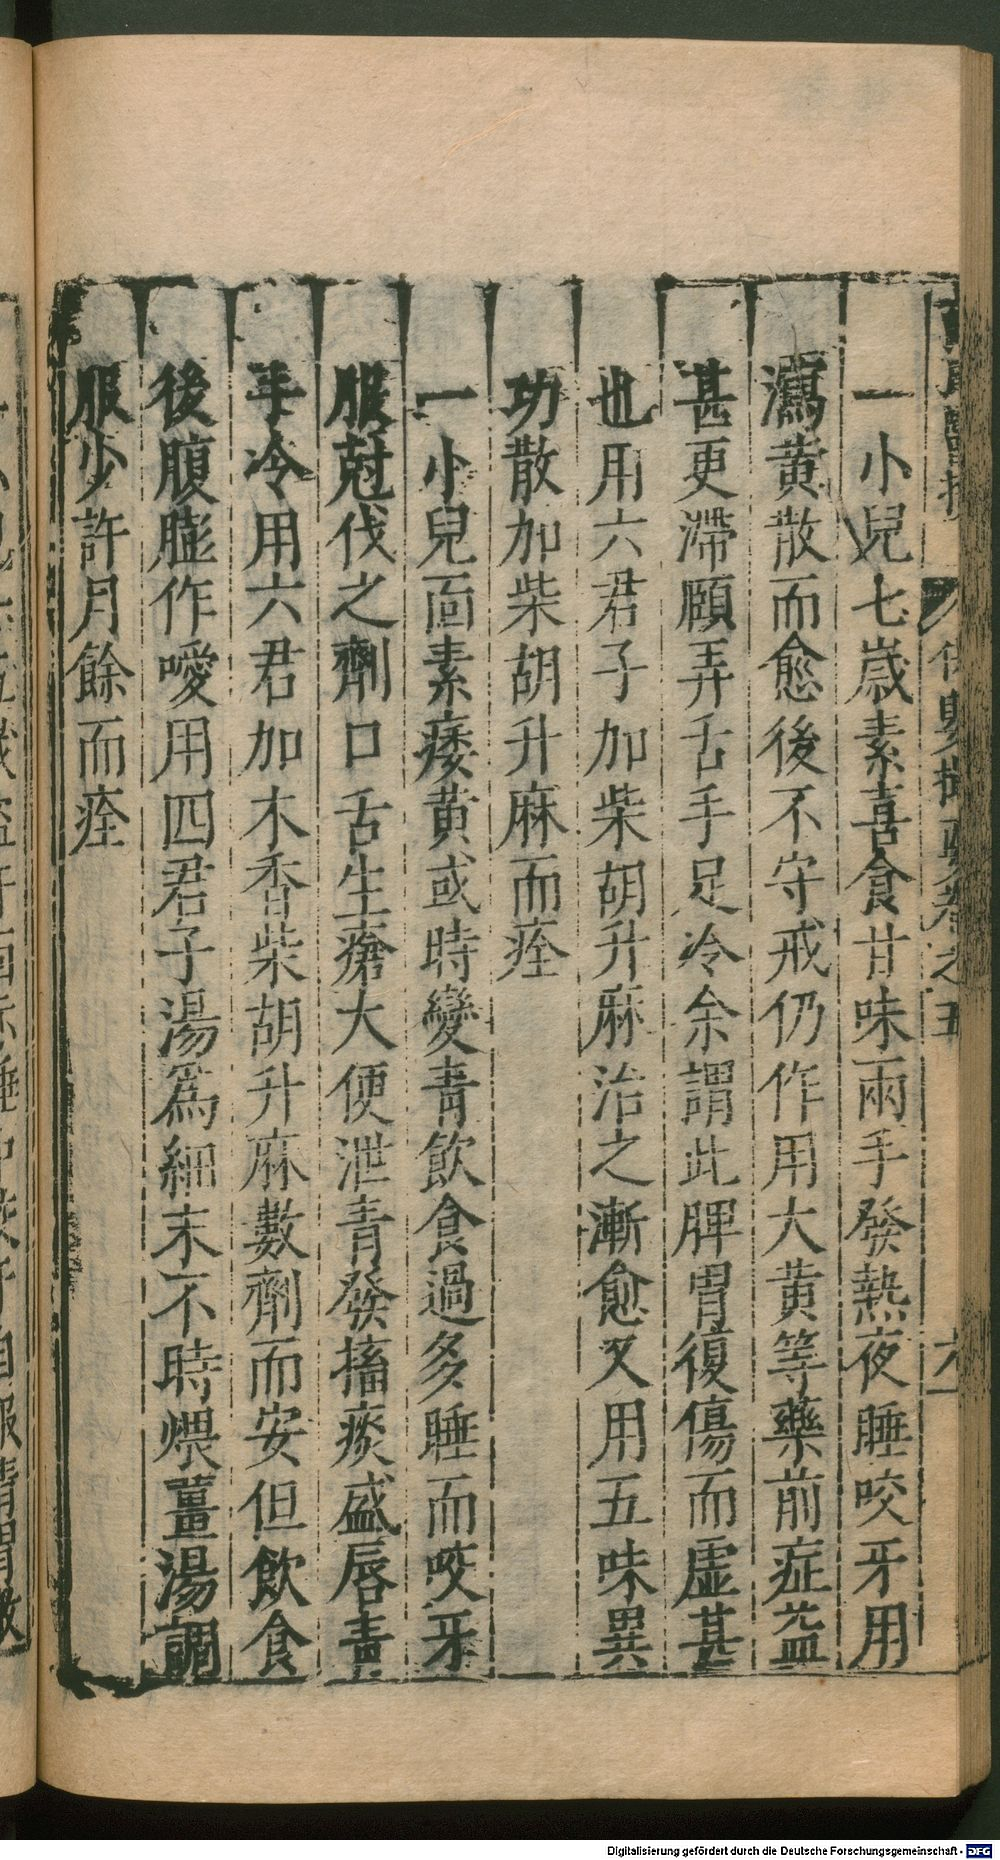 保嬰撮要卷之五
六
一小兒七歲素喜食甘味兩手發熱夜睡咬牙用
瀉黃散而愈後不守戒仍作用大黃等藥前症益
甚更滯頤弄舌手足冷余謂此脾胃復傷而虛甚
也用六君子加柴胡升麻治之漸愈又用五味異
功散加柴胡升麻而痊
一小兒面素痿黃或時變青飲食過多睡而咬牙
服尅伐之劑口舌生瘡大便泄青發搐痰盛唇青
手冷用六君加木香柴胡升麻數劑而安但飲食
後腹膨作噯用四君子湯爲細末不時煨薑湯調
服少許月餘而痊
Digitalisierung gefördert durch die Deutsche Forschungsgemeinschaft - DFG